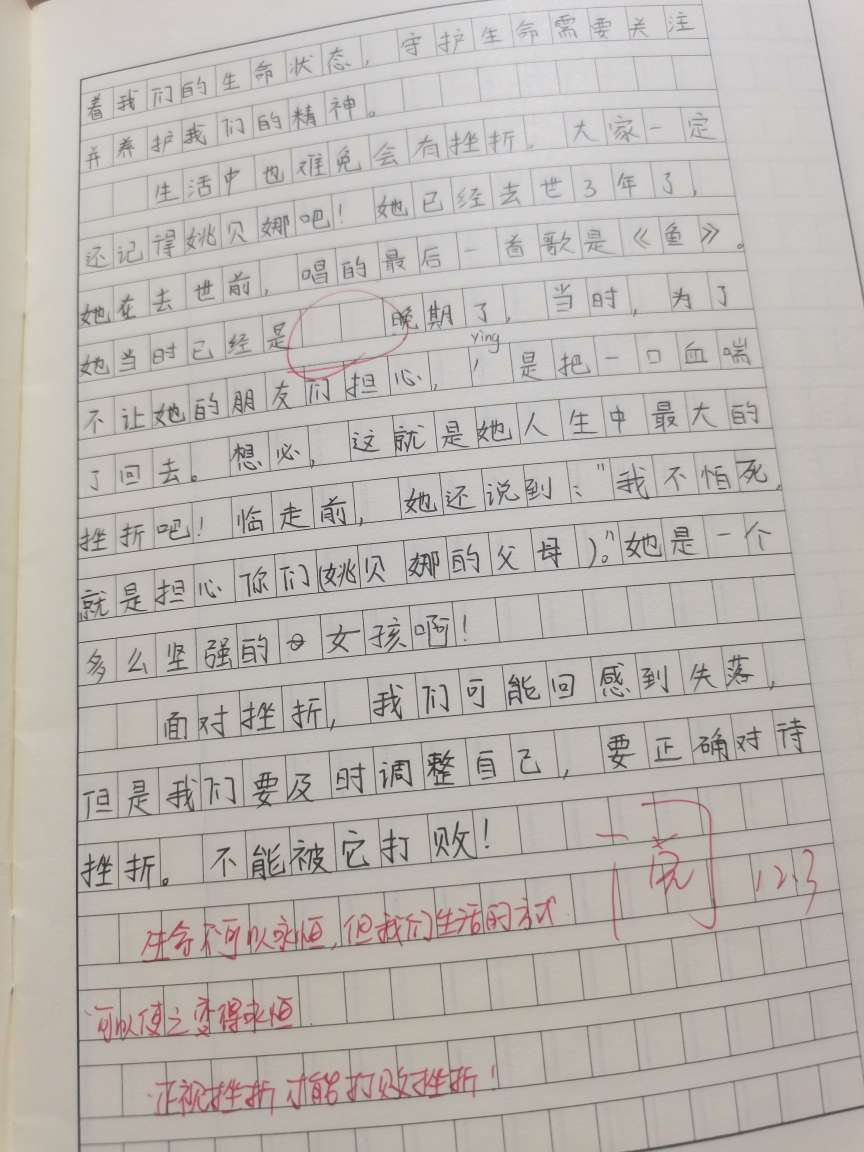 着我们的生命状态，守护生命需要关注
并养护我们的精神。
生活中也难免会有挫折。大家一定
还记得姚贝娜吧！她已经去世3年了，
她在去世前，唱的最后一首歌是《鱼》。
她当时已经是 晚期了，当时，为了
ying
不让她的朋友们担心， 是把一口血喘
了回去。想必，这就是她人生中最大的
挫折吧！临走前，她还说到："我不怕死，
就是担心你们(姚贝娜的父母)。"她是一个
多么坚强的女孩啊！
面对挫折，我们可能回感到失落，
但是我们要及时调整自己，要正确对待
挫折。不能被它打败！
12.3
生命不可以永恒，但我们生活的方式
可以使之变得永恒
正视挫折才能打败挫折！